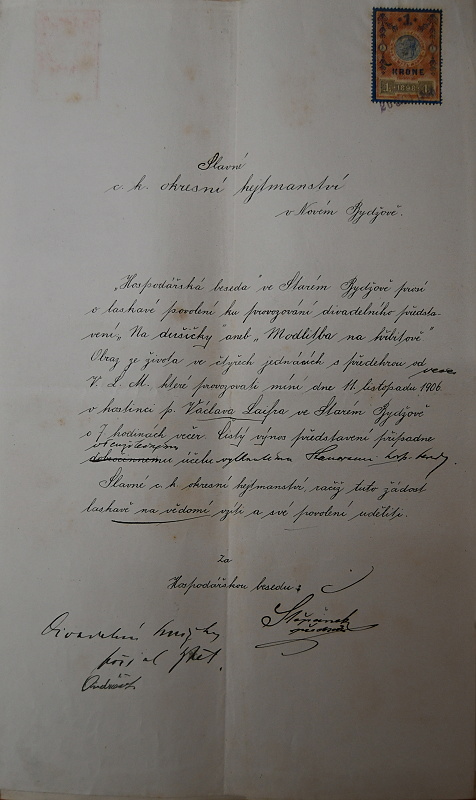 1
KRONE
1898
Slavné
c. k. okresní hejtmanství
v Novém Bydžově.
„Hospodářská beseda" ve Starém Bydžově prosí
o laskavé povolení ku provozování divadelního předsta-
vení „Na dušičky" aneb „Modlitba na hřbitově"
Obraz ze života ve čtyřech jednáních s předehrou od
V. L. M. které provozovati míní dne 11. listopadu 1906.
v hostinci p. Václava Laifra ve Starém Bydžově
o 7 hodinách večer. Čistý výnos představení připadne
dobročinnému účelu
Slavné c. k. okresní hejtmanství, račiž tuto žádost
laskavě na vědomí vzíti a své povolení uděliti.
Za
Hospodářskou besedu:
Štěpánek
předseda
Divadelní knížky